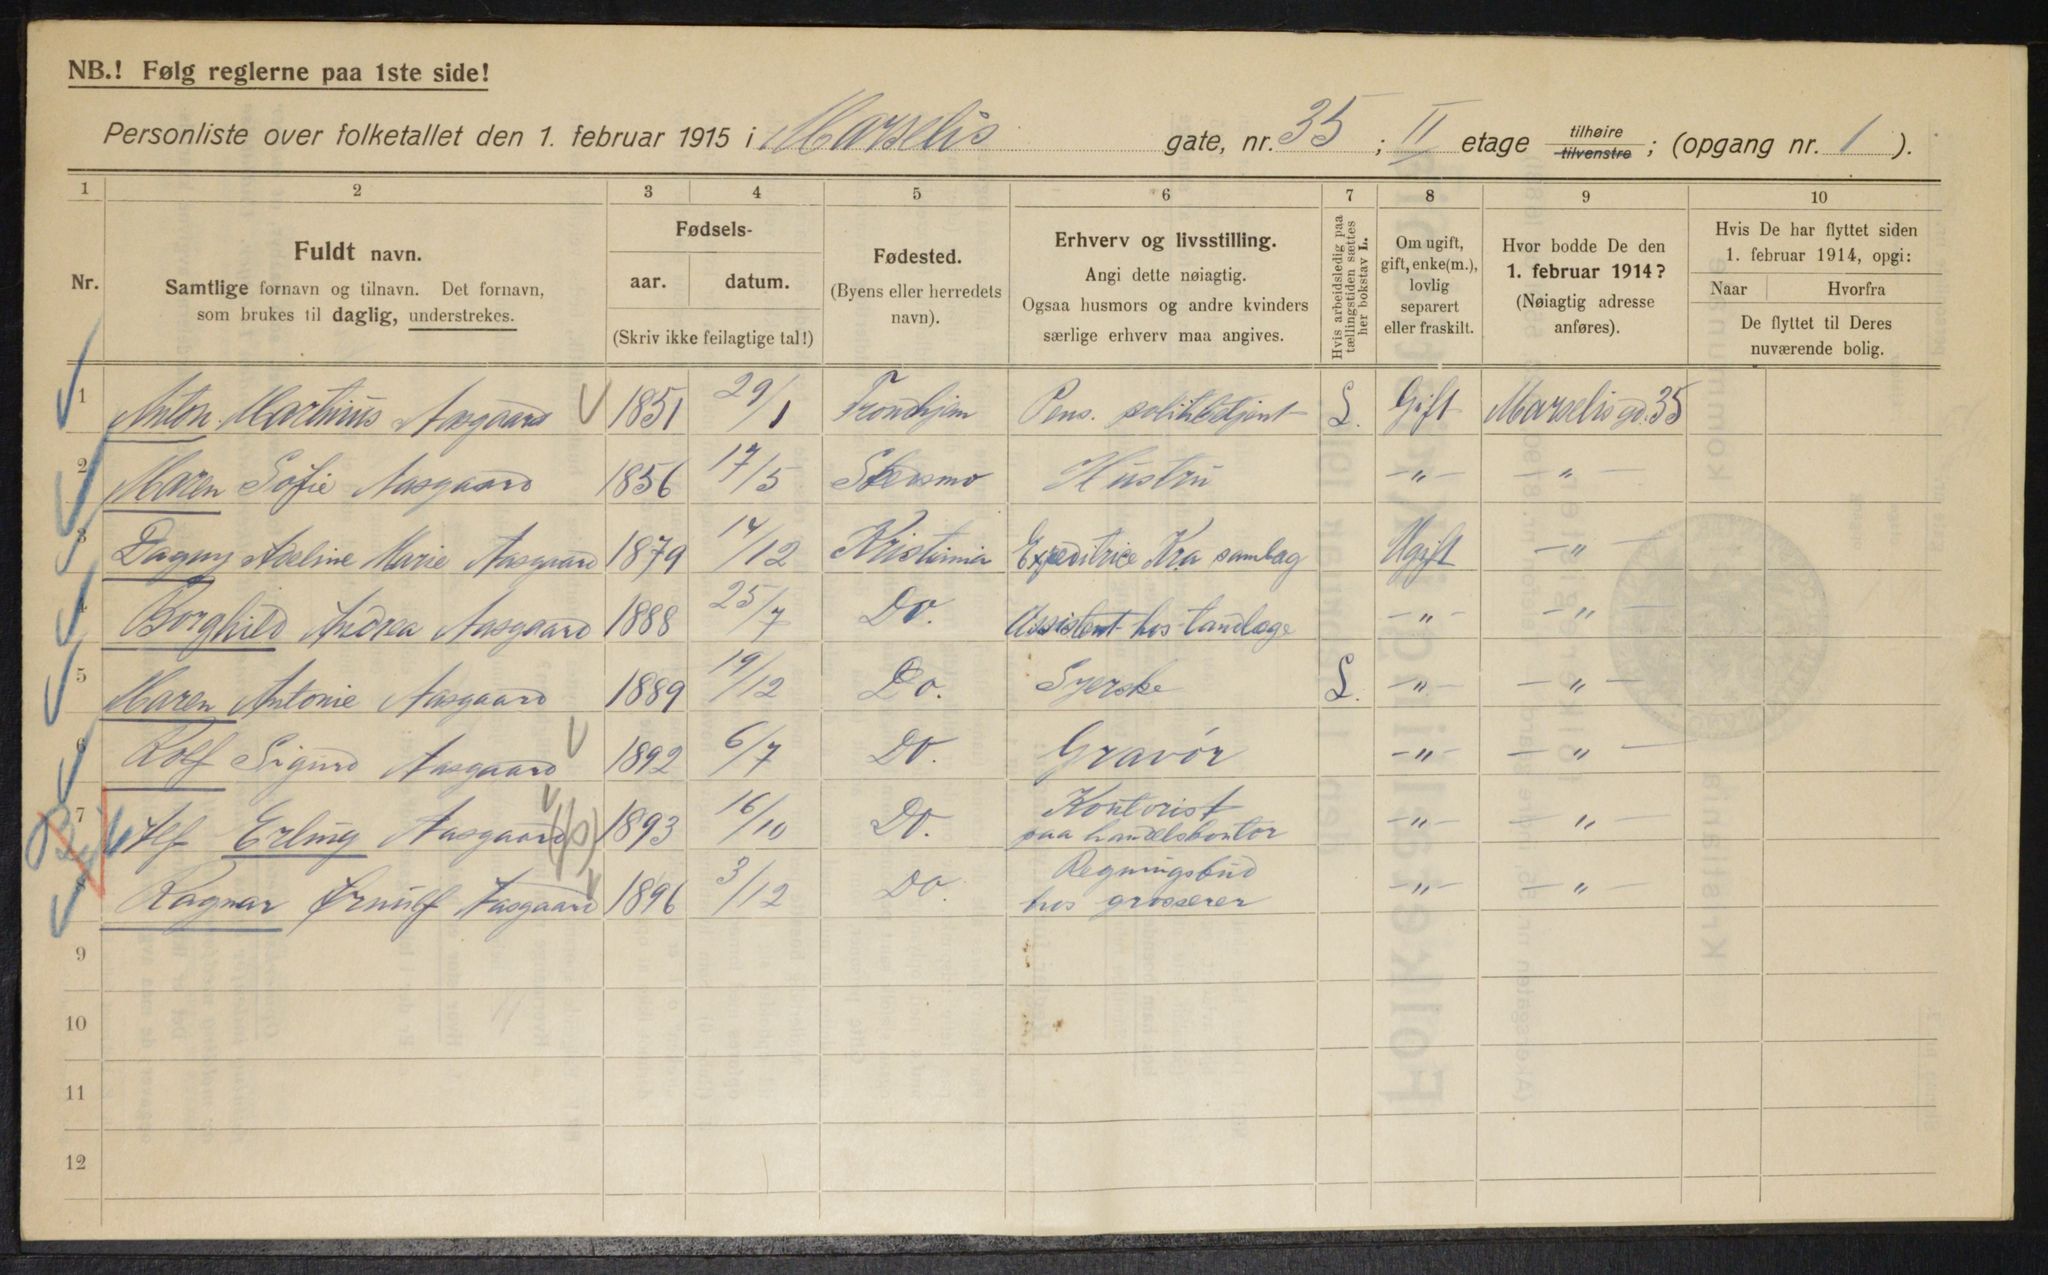 NB.! Følg reglerne paa 1ste side!
Personliste over folketallet den 1. februar 1915 i Marselis gate, nr. 35 ; II etage tilhøire tilvenstre ; (opgang nr. 1 ).
1 2 3 4 5 6 7 8 9 10
Nr.
Fuldt navn.
Samtlige fornavn og tilnavn. Det fornavn,
som brukes til daglig, understrekes.
Fødsels-
aar. datum.
(Skriv ikke feilagtige tal!)
Fødested.
(Byens eller herredets
navn).
Erhverv og livsstilling.
Angi dette nøiagtig.
Ogsaa husmors og andre kvinders
særlige erhverv maa angives.
Hvis arbeidsledig paa
tællingstiden sættes
her bokstav L.
Om ugift,
gift, enke(m.),
lovlig
separert
eller fraskilt.
Hvor bodde De den
1. februar 1914?
(Nøiagtig adresse
anføres).
Hvis De har flyttet siden
1. februar 1914, opgi:
Naar Hvorfra
De flyttet til Deres
nuværende bolig.
1 Anton Martinius Aasgaard 1851 29/1 Trondhjem Pens. politibetjent L. Gift Marselis gd. 35
2 Maren Sofie Aasgaard 1856 17/5 Skedsmo Hustru -"- -"-
3 Dagny Adeline Marie Aasgaard 1879 14/12 Kristiania Expeditrice Kra samlag Ugift -"-
4 Borghild Andrea Aasgaard 1888 25/7 Do. Assistent hos tandlæge -"- -"-
5 Maren Antonie Aasgaard 1889 19/12 Do. Syerske L. -"- -"-
6 Rolf Sigurd Aasgaard 1892 6/7 Do. Gravør -"- -"-
7 Alf Erling Aasgaard 1893 16/10 Do. Kontorist -"- -"-
paa handelskontor
8 Ragnar Ørnulf Aasgaard 1896 3/12 Do. Regningsbud -"- -"-
hos grosserer
9
10
11
12